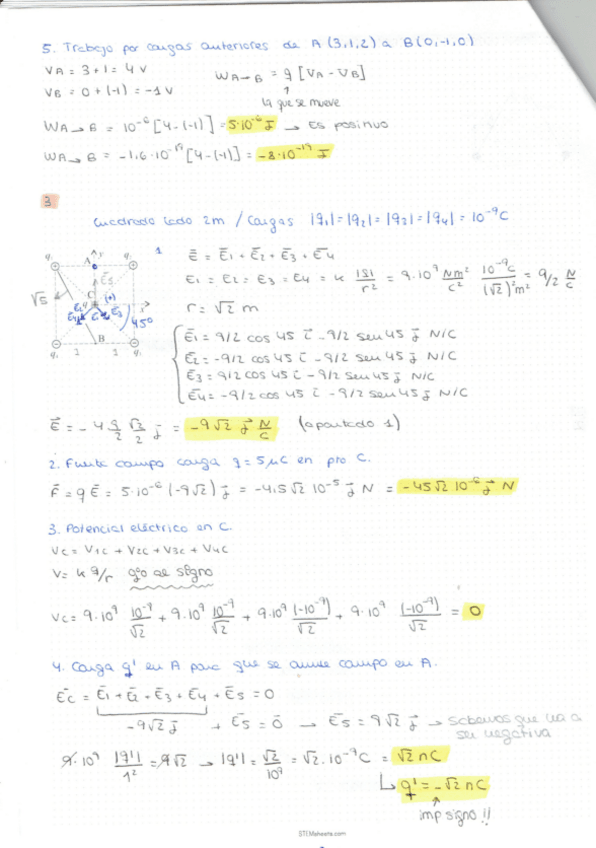 5. Trabajo por cargas anteriores de A (3,1,2) a B (0,-1,0)
VA = 3+1 = 4 V
VB = 0+(-1) = -1 V
WA→B = q [VA - VB]
↑
la que se mueve
WA→B = 10⁻⁶ [4-(-1)] = 5·10⁻⁶ J → Es positivo
WA→B = -1,6·10⁻¹⁹ [4-(-1)] = -8·10⁻¹⁹ J
3
cuadrado lado 2m / cargas |q1| = |q2| = |q3| = |q4| = 10⁻⁹C
1
E = E1 + E2 + E3 + E4
E1 = E2 = E3 = E4 = k |q|/r² = 9·10⁹ Nm²/C² 10⁻⁹C/(√2)²m² = 9/2 N/C
r = √2 m
√5
A
E5
C
45°
B
1 1
E1 = 9/2 cos 45 i - 9/2 sen 45 j N/C
E2 = -9/2 cos 45 i - 9/2 sen 45 j N/C
E3 = 9/2 cos 45 i - 9/2 sen 45 j N/C
E4 = -9/2 cos 45 i - 9/2 sen 45 j N/C
E = -4 9/2 √2/2 j = -9√2 j N/C (apartado 1)
2. Fuerte campo carga q = 5μC en pto C.
F = q E = 5·10⁻⁶ (-9√2) j = -4,5√2 10⁻⁵ j N = -45√2 10⁻⁶ j N
3. Potencial eléctrico en C.
VC = V1C + V2C + V3C + V4C
V = k q/r ojo al signo
VC = 9·10⁹ 10⁻⁹/√2 + 9·10⁹ 10⁻⁹/√2 + 9·10⁹ (-10⁻⁹)/√2 + 9·10⁹ (-10⁻⁹)/√2 = 0
4. Carga q' en A para que se anule campo en A.
EC = E1 + E2 + E3 + E4 + E5 = 0
-9√2 j + E5 = 0 → E5 = 9√2 j → sabemos que va a
ser negativa
9·10⁹ |q'|/1² = 9√2 → |q'| = √2/10⁹ = √2·10⁻⁹C = √2 nC
↳ q' = -√2 nC
↑
imp signo !!
STEMsheets.com